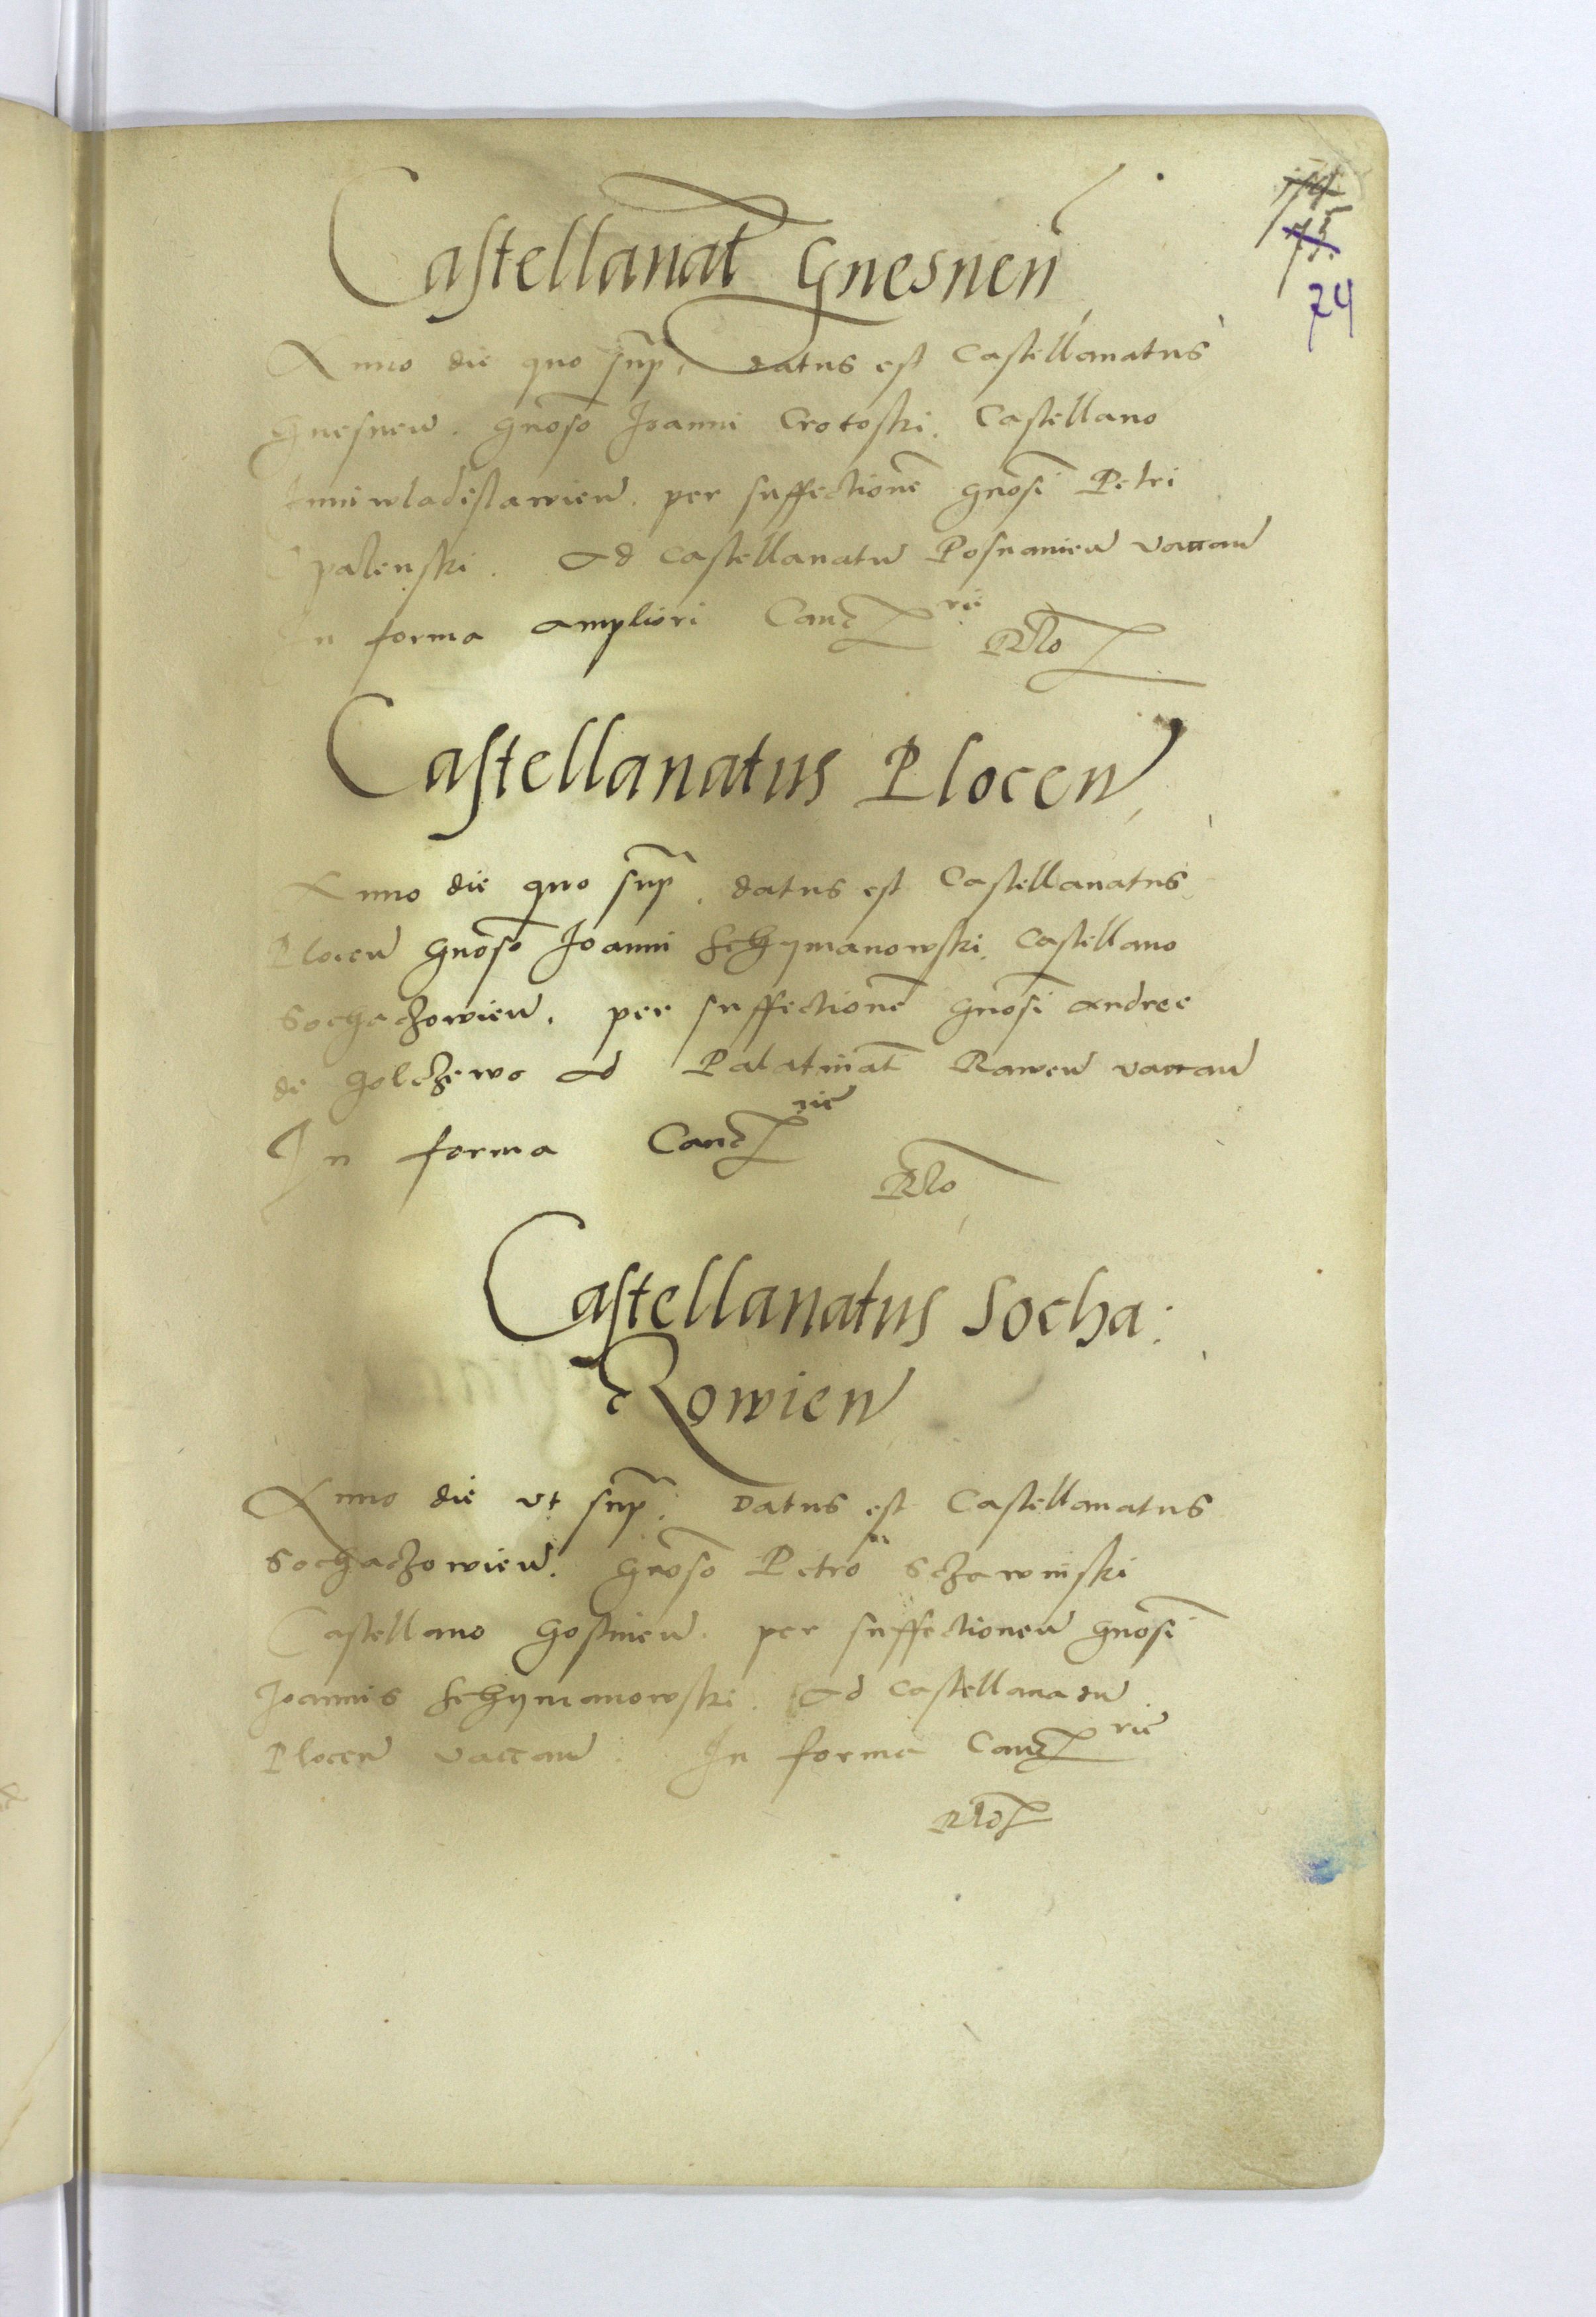 75
74
Castellanat Gnesnen
Anno die quo sup. datus est Castellanatus
Gnesnen. Gnoso Joanni Crotoski. Castellano
Juniwladislawien. per suffectione gnosi Petri
Opalenski. Ad Castellanatu Posnanien vacan
In forma ampliori Canc rie
Castellanatus Plocen
Anno die quo sup. datus est Castellanatus
Plocen Gnoso Joanni Schymanowski. Castellano
Sochaczowien. per suffectione Gnosi Andree
de Golczewo ad Palatinat Rawen vacan
In forma Canc rie
Castellanatus Socha:
czowien
Anno die ut sup. Datus est Castellanatus
Sochaczowien. Gnoso Petro Sczawinski
Castellano Gostinen. per suffectionen gnosi
Joannis Schymanowski. Ad Castellanatu
Plocen vacan. In forma Canc rie